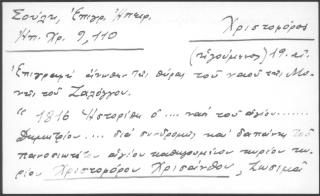 Σούλη, Ἐπιγρ. Ἠπειρ.
Ἠπ. Χρ. 9, 110
Χριστοφόρος
(ἡγούμενος) 19. αἰ.
Ἐπιγραφὴ ἄνωθεν τῆς θύρας τοῦ ναοῦ τῆς Μο-
νῆς τοῦ Ζαλόγγου.
" 1816 Ἡστορίθη ὁ ... ναὸ τοῦ ἁγίου ......
Δημητρίου ... διὰ συνδρομῆς καὶ δαπάνης τοῦ
πανοσιωτάτου ἁγίου καθηγουμένου κυρίου κυ-
ρίου Χριστοφόρου Χρισάνθου, Ζωσιμᾶ